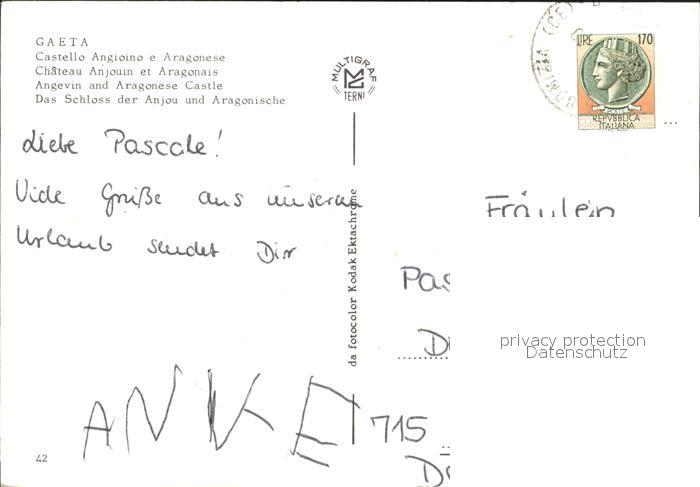 GAETA
Castello Angioino e Aragonese
Château Anjouin et Aragonais
Angevin and Aragonese Castle
Das Schloss der Anjou und Aragonische
Liebe Pascale!
Viele Grüße aus unserem
Urlaub sendet Dir
ANKE
42
MULTIGRAF
TERNI
da fotocolor Kodak Ektachrome
LIRE 170
POSTE
REPVBBLICA
ITALIANA
Fräulein
Pas
D
715
D
privacy protection
Datenschutz